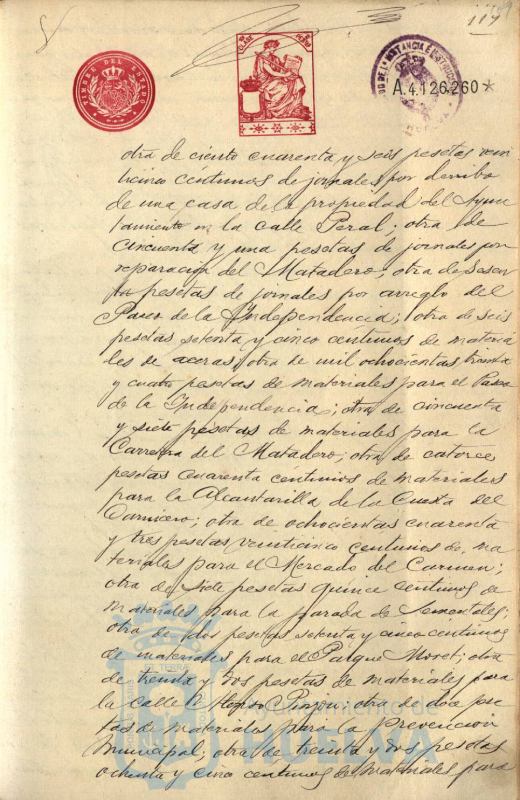 117
TIMBRE DEL ESTADO
CLASE
A.4.126.260*
otra de ciento cuarenta y seis pesetas vein
ticinco céntimos de jornales por derribo
de una casa de la propiedad del Ayun
tamiento en la calle Peral; otra de
cincuenta y una pesetas de jornales por
reparación del Matadero; otra de sesen
ta pesetas de jornales por arreglo del
Paseo de la Independencia; otra de seis
pesetas setenta y cinco céntimos de materia
les de aceras; otra de mil ochocientas treinta
y cuatro pesetas de materiales para el Paseo
de la Independencia; otra de cincuenta
y siete pesetas de materiales para la
Carretera del Matadero; otra de catorce
pesetas cuarenta céntimos de materiales
para la Alcantarilla de la Cuesta del
Carnicero; otra de ochocientas cuarenta
y tres pesetas veinticinco centimos de ma
teriales para el Mercado del Carmen;
otra de siete pesetas quince centimos de
materiales para la parada de Sementales;
otra de dos pesetas setenta y cinco centimos
de materiales para el Parque Moret; otra
de treinta y dos pesetas de materiales para
la calle Alonso Pinzón; otra de doce pese
tas de materiales para la Prevención
Municipal; otra de treinta y dos pesetas
ochenta y cinco centimos de materiales para
Ayuntamiento de
HUELVA